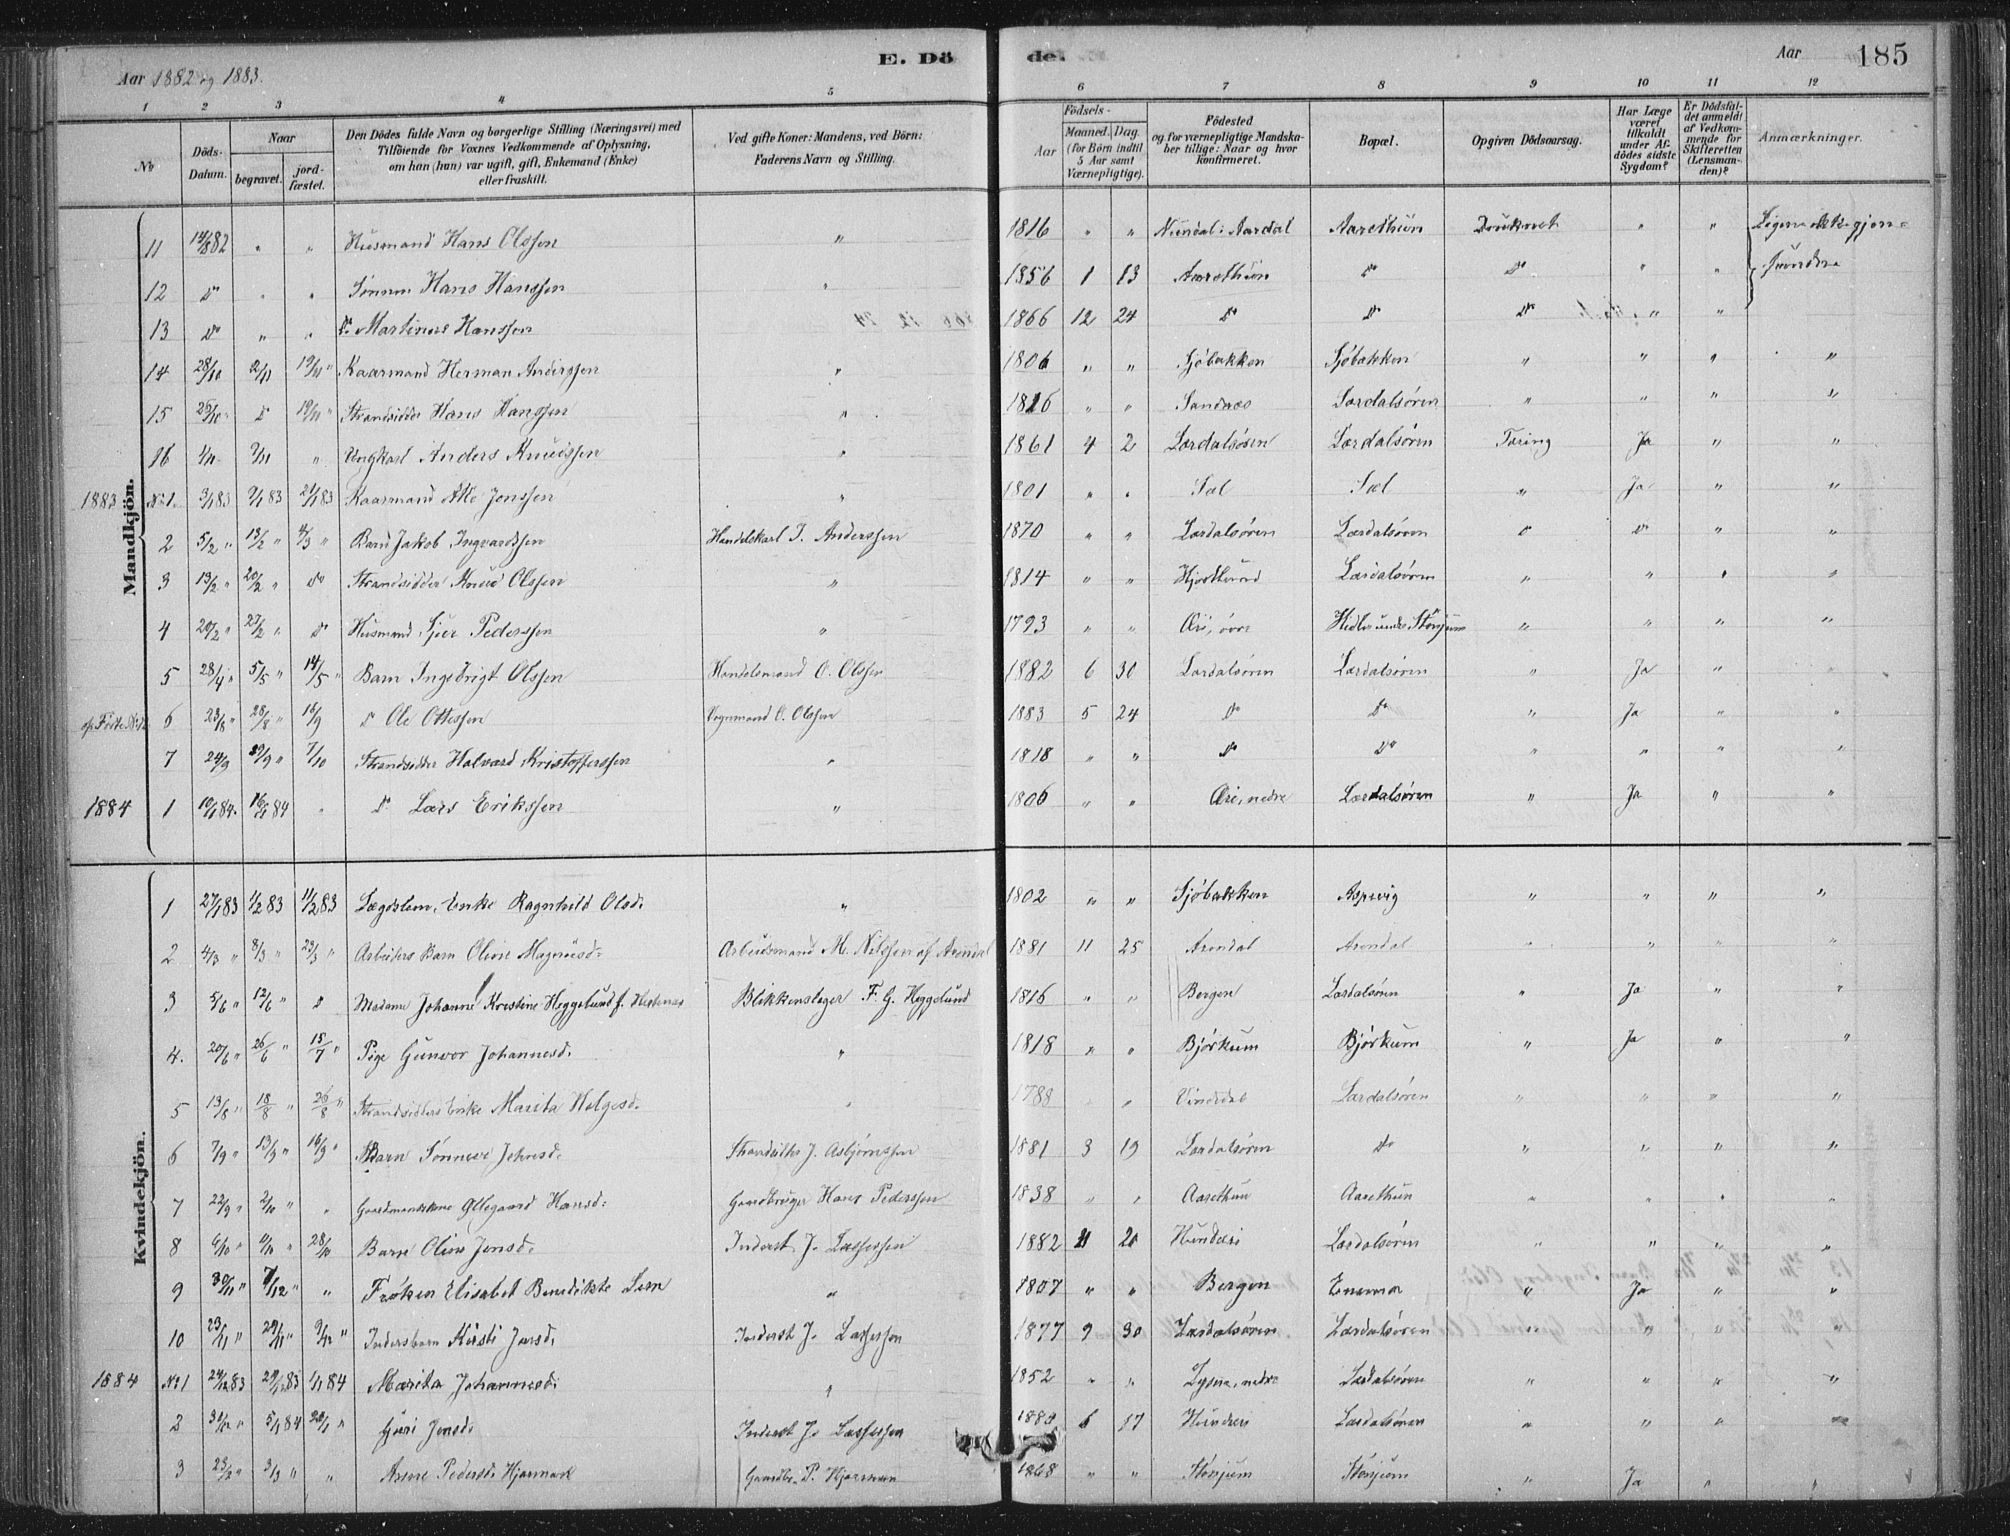 Aar 1882 og 1883. E. Döde. Aar 185
1 2 3 4 5 6 7 8 9 10 11 12
No Döds-Datum. Naar begravet. jordfæstet. Den Dödes fulde Navn og borgerlige Stilling (Næringsvei) med Tilföiende for Voxnes Vedkommende af Oplysning, om han (hun) var ugift, gift, Enkemand (Enke) eller fraskilt. Ved gifte Koner: Mandens, ved Börn: Faderens Navn og Stilling. Födsels- Aar Maaned. Dag. (for Börn indtil 5 Aar samt Værnepligtige). Födested og for værnepligtige Mandskaber tillige: Naar og hvor konfirmeret. Bopæl. Opgiven Dödsaarsag. Har Læge været tilkaldt under Afdödes sidste Sygdom? Er Dödsfaldet anmeldt af Vedkommende for Skifteretten (Lensmanden)? Anmærkninger.
Mandkjön.
11 14/8 82 " " Husmand Hans Olssen " 1816 " " Nundal i Aardal Aarethun Druknet " " Ligene ikke gjen=
12 do " " Sønnen Hans Hanssen " 1856 1 13 Aarethun do do " " fundne
13 do " " do Martinus Hanssen 1866 12 24 do do do " "
14 28/10 2/11 19/11 " Kaarmand Herman Anderssen " 1806 " " Sjöbakken Sjöbakken " " " "
15 25/10 " do 19/11 " Strandsidder Hans Hanssen " 1816 " " Sandnes Lærdalsören " " " "
16 1/11 9/11 " Ungkarl Anders Knudssen " 1861 4 2 Lærdalsören Lærdalsören Tæring Ja " "
1883 No 1. 3/1 83 9/1 83 21/1 83 Kaarmand Atle Jonssen " 1801 " " Sæl Sæl " Ja " "
2 5/2 " 13/2 " 4/3 " Barn Jakob Ingvardssen Handelskarl I. Anderssen 1870 " " Lærdalsören Lærdalsören " " "
3 13/2 " 20/2 " do Strandsidder Knud Olssen " 1814 " " Lærdalsören " " " "
4 20/2 " 27/2 " do Husmand Sjur Pederssen " 1793 " " Øri, övre under Stönjum " " " "
5 28/4 " 5/5 " 14/5 " Barn Ingebrigt Olssen Handelsmand O. Olssen 1882 6 30 Lærdalsören Lærdalsören " Ja " "
6 23/8 " 28/8 " 16/9 do Ole Ottessen Vognmand O. Olssen 1883 5 24 do do " Ja " "
7 24/9 29/9 " 7/10 Strandsidder Halvard Kristofferssen " 1818 " " do do " " " "
1884 1 10/1 84. 16/1 84 " do Lars Erikssen " 1806 " " Øri, nedre Lærdalsören " Ja " "
Kvindekjön.
1 27/1 83 1/2 83 11/2 83 Lægdslem, Enke Ragnhild Olsd. " 1802 " " Sjöbakken Aspevig " " " "
2 4/3 " 8/3 " 23/3 " Arbeiders Barn Oline Magnusd. Arbeidsmand M. Nilssen af Arendal 1881 11 25 Arendal Arendal " " " "
3 5/6 " 12/6 " do Madame Johanne Kristine Heggelund f. Blikkenslager F. G. Heggelund 1816 " " Bergen Lærdalsören " Ja " "
4. 20/6 " 26/6 " 15/7 " Pige Gunvor Johannesd. " 1818 " " Bjørkum Bjørkum " Ja " "
5 13/8 " 18/8 " 26/8 " Strandsidders Enke Marita Helgesd. " 1788 " " Vindedal Lærdalsören " " " "
6 7/9 " 13/9 " 16/9 " Barn Sønneve Johnsd. Strandsidder J. Asbjørnssen 1881 3 19 Lærdalsören do " " " "
7 22/9 " 2/10 " " Gaardmandskone Ollegaard Hansd. Gaardbruger Hans Pederssen 1838 " " Aarethun Aarethun " " " "
8 6/10 " 11/10 " 28/10 Barn Oline Jensd. Inderst J. Lassessen 1882 11 20 Hunderi Lærdalsören " " " "
9 30/11 " 7/12 " " Frøken Elisabet Benedikte Lem " 1807 " " Bergen " Ja " "
10 23/11 " 29/11 " 9/12 " Indersbarn Kirsti Jensd. Inderst J. Lassessen 1877 9 30 Lærdalsören Lærdalsören " " " "
1884 No 1 24/12 83 29/12 83 1/1 84 Marita Johannesd. " 1852 " " Lysne, nedre Lærdalsören " " " "
2 31/12 " 5/1 84 20/1 " Guri Jensd. Inderst J. Lassessen 6 17 Hunderi Lærdalsören " " "
3 23/2 " 3/3 " " Anne Pedersd. Hjermann Gaardbr. P. Hjermann 1868 " " Stönjum Stönjum " Ja " "